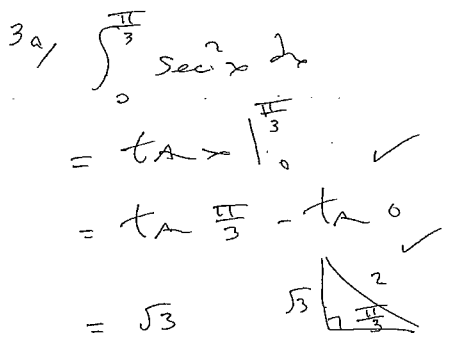 3a/ ∫₀^{π/3} sec²x dx
= tan x |₀^{π/3} ✓
= tan π/3 - tan 0 ✓
= √3
√3 2 π/3